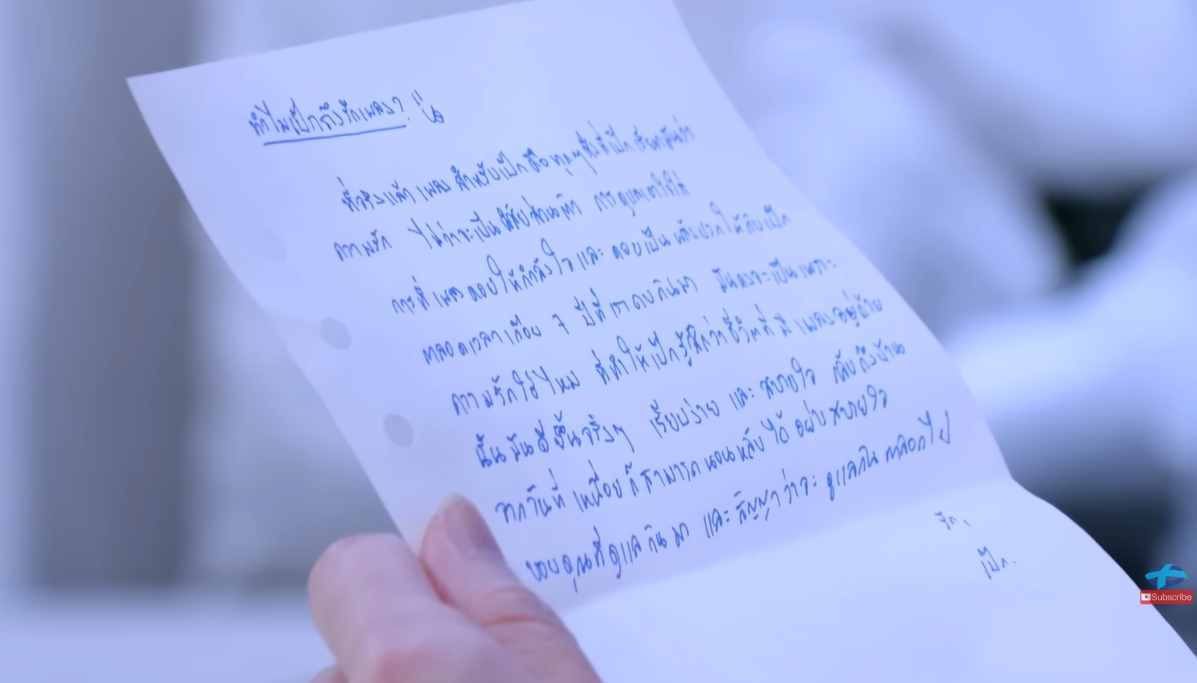 ทำไมเป๊กถึงรักเพลง?
ที่จริงแล้ว เพลง สำหรับเป๊กคือทุกๆสิ่งที่เป๊กเรียกมันว่า
ความรัก ไม่ว่าจะเป็นนิสัยส่วนตัว การดูแลเอาใจใส่
การที่เพลงคอยให้กำลังใจ และ คอยเป็นพลังบวกให้กับเป๊ก
ตลอดเวลาเกือบ 7 ปีที่เราคบกันมา มันคงจะเป็นเพราะ
ความรักใช่ไหม ที่ทำให้เป๊กรู้สึกว่าชีวิตที่มี เพลงอยู่ด้วย
นั้นมันดีขึ้นจริงๆ เรียบง่าย และ สบายใจ กลับถึงบ้าน
จากวันที่ เหนื่อย ก็สามารถ นอนหลับได้ อย่างสบายใจ
ขอบคุณที่ดูแลกันมา และสัญญาว่าจะ ดูแลกัน ตลอดไป
รัก,
เป๊ก.
Subscribe